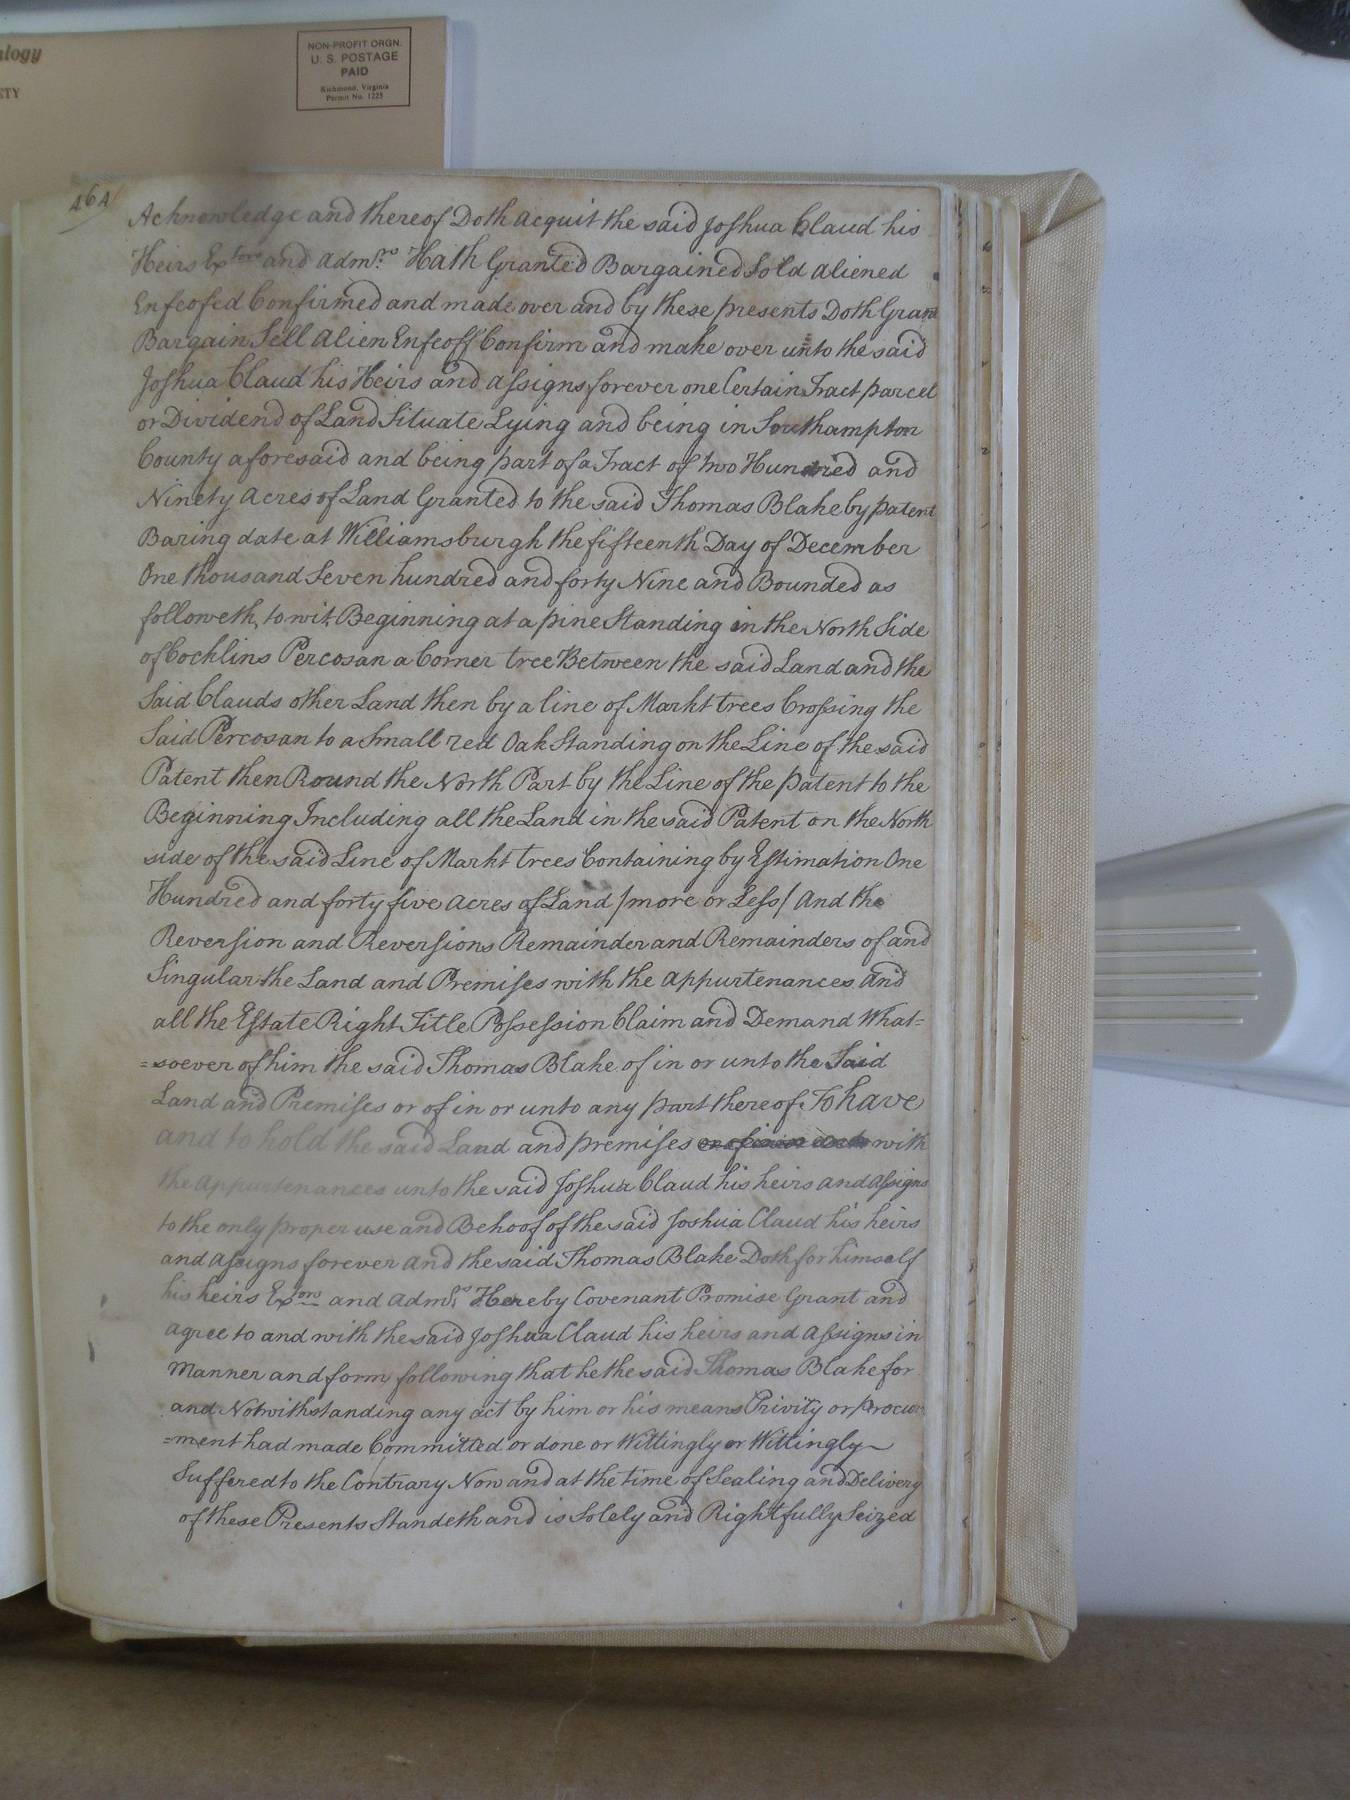 alogy
ETY
NON-PROFIT ORGN.
U. S. POSTAGE
PAID
Richmond, Virginia
Permit No. 1225
464
Acknowledge and thereof Doth acquit the said Joshua Claud his
Heirs Extors and admrs Hath Granted Bargained Sold aliened
Enfeofed Confirmed and made over and by these presents Doth Grant
Bargain Sell Alien Enfeoff Confirm and make over unto the said
Joshua Claud his Heirs and assigns forever one Certain Tract parcel
or Dividend of Land Situate Lying and being in Southampton
County aforesaid and being part of a Tract of two Hundred and
Ninety Acres of Land Granted to the said Thomas Blake by patent
Baring date at Williamsburgh the fifteenth Day of December
One thousand Seven hundred and forty Nine and Bounded as
followeth, to wit Beginning at a pine Standing in the North Side
of Cocklins Percosan a Corner tree Between the said Land and the
Said Clauds other Land then by a line of Markt trees Crossing the
Said Percosan to a Small red Oak Standing on the Line of the said
Patent then Round the North Part by the Line of the patent to the
Beginning Including all the Land in the said Patent on the North
side of the said Line of Markt trees Containing by Estimation One
Hundred and forty five Acres of Land /more or Less/ And the
Reversion and Reversions Remainder and Remainders of and
Singular the Land and Premises with the appurtenances and
all the Estate Right Title Possession Claim and Demand What=
=soever of him the said Thomas Blake of in or unto the Said
Land and Premises or of in or unto any part thereof To have
and to hold the said Land and premises with
the appurtenances unto the said Joshua Claud his heirs and assigns
to the only proper use and Behoof of the said Joshua Claud his heirs
and assigns forever and the said Thomas Blake Doth for himself
his heirs Exors and admrs Hereby Covenant Promise Grant and
agree to and with the said Joshua Claud his heirs and assigns in
Manner and form following that he the said Thomas Blake for
and Notwithstanding any act by him or his means Privity or procur
=ment had made Committed or done or Wittingly or Wittingly
Suffered to the Contrary Now and at the time of Sealing and Delivery
of these Presents Standeth and is Solely and Rightfully Seized